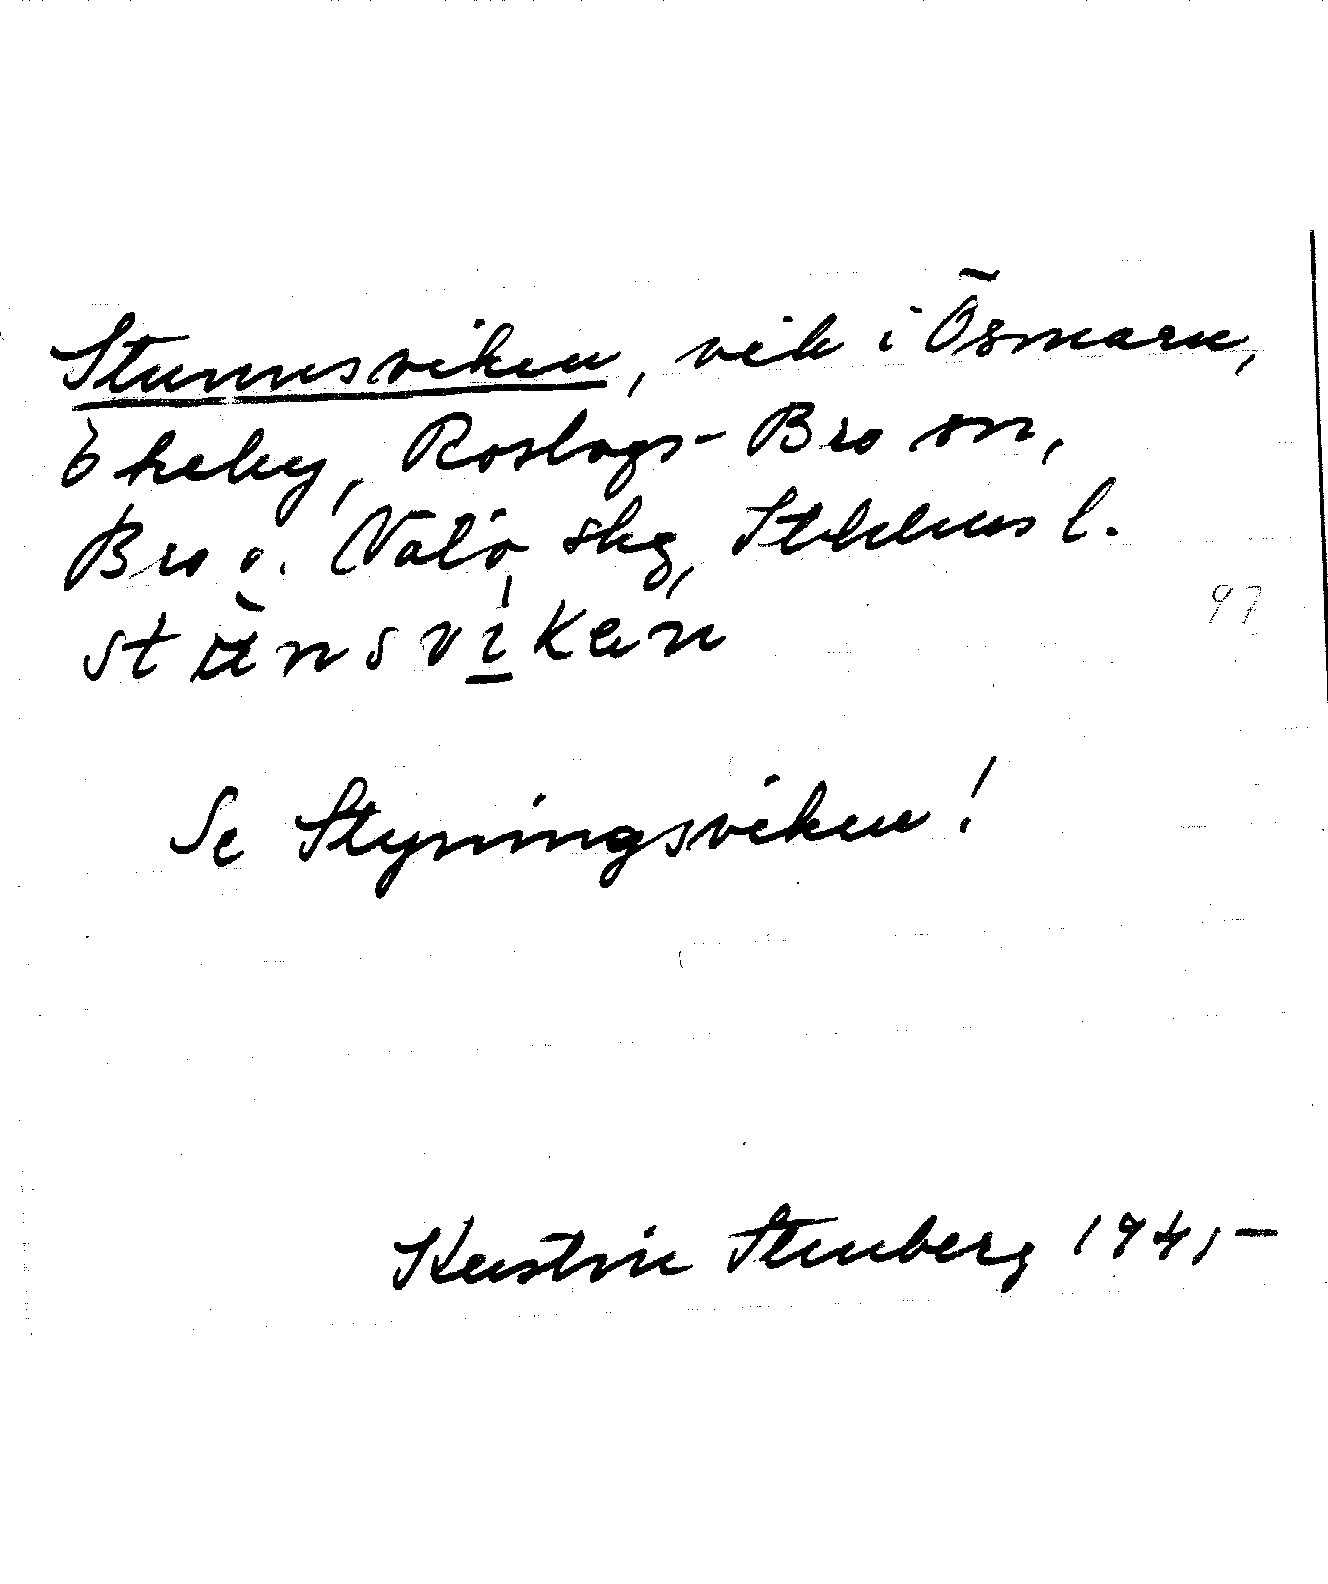 Stunnsviken, vik i Ösmaren,
Ökeby, Roslags-Bro sn,
Bro o. Vätö skg, Stckhns l.
stünsvi̱ken
97
Se Styningsviken!
Kerstin Stenberg 194,-